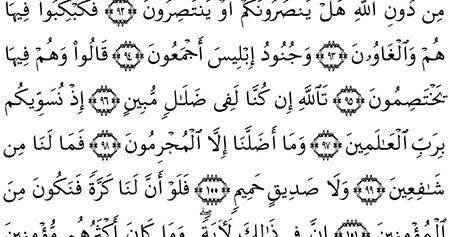 مِن دُونِ ٱللَّهِ هَلْ يَنصُرُونَكُمْ أَوْ يَنتَصِرُونَ ٩٢ فَكُبْكِبُوا۟ فِيهَا
هُمْ وَٱلْغَاوُۥنَ ٩٣ وَجُنُودُ إِبْلِيسَ أَجْمَعُونَ ٩٤ قَالُوا۟ وَهُمْ فِيهَا
يَخْتَصِمُونَ ٩٥ تَٱللَّهِ إِن كُنَّا لَفِى ضَلَٰلٍ مُّبِينٍ ٩٦ إِذْ نُسَوِّيكُم
بِرَبِّ ٱلْعَٰلَمِينَ ٩٧ وَمَآ أَضَلَّنَآ إِلَّا ٱلْمُجْرِمُونَ ٩٨ فَمَا لَنَا مِن
شَٰفِعِينَ ٩٩ وَلَا صَدِيقٍ حَمِيمٍ ١٠٠ فَلَوْ أَنَّ لَنَا كَرَّةً فَنَكُونَ مِنَ
ٱلْمُؤْمِنِينَ ١٠١ إِنَّ فِى ذَٰلِكَ لَءَايَةً ۖ وَمَا كَانَ أَكْثَرُهُم مُّؤْمِنِينَ